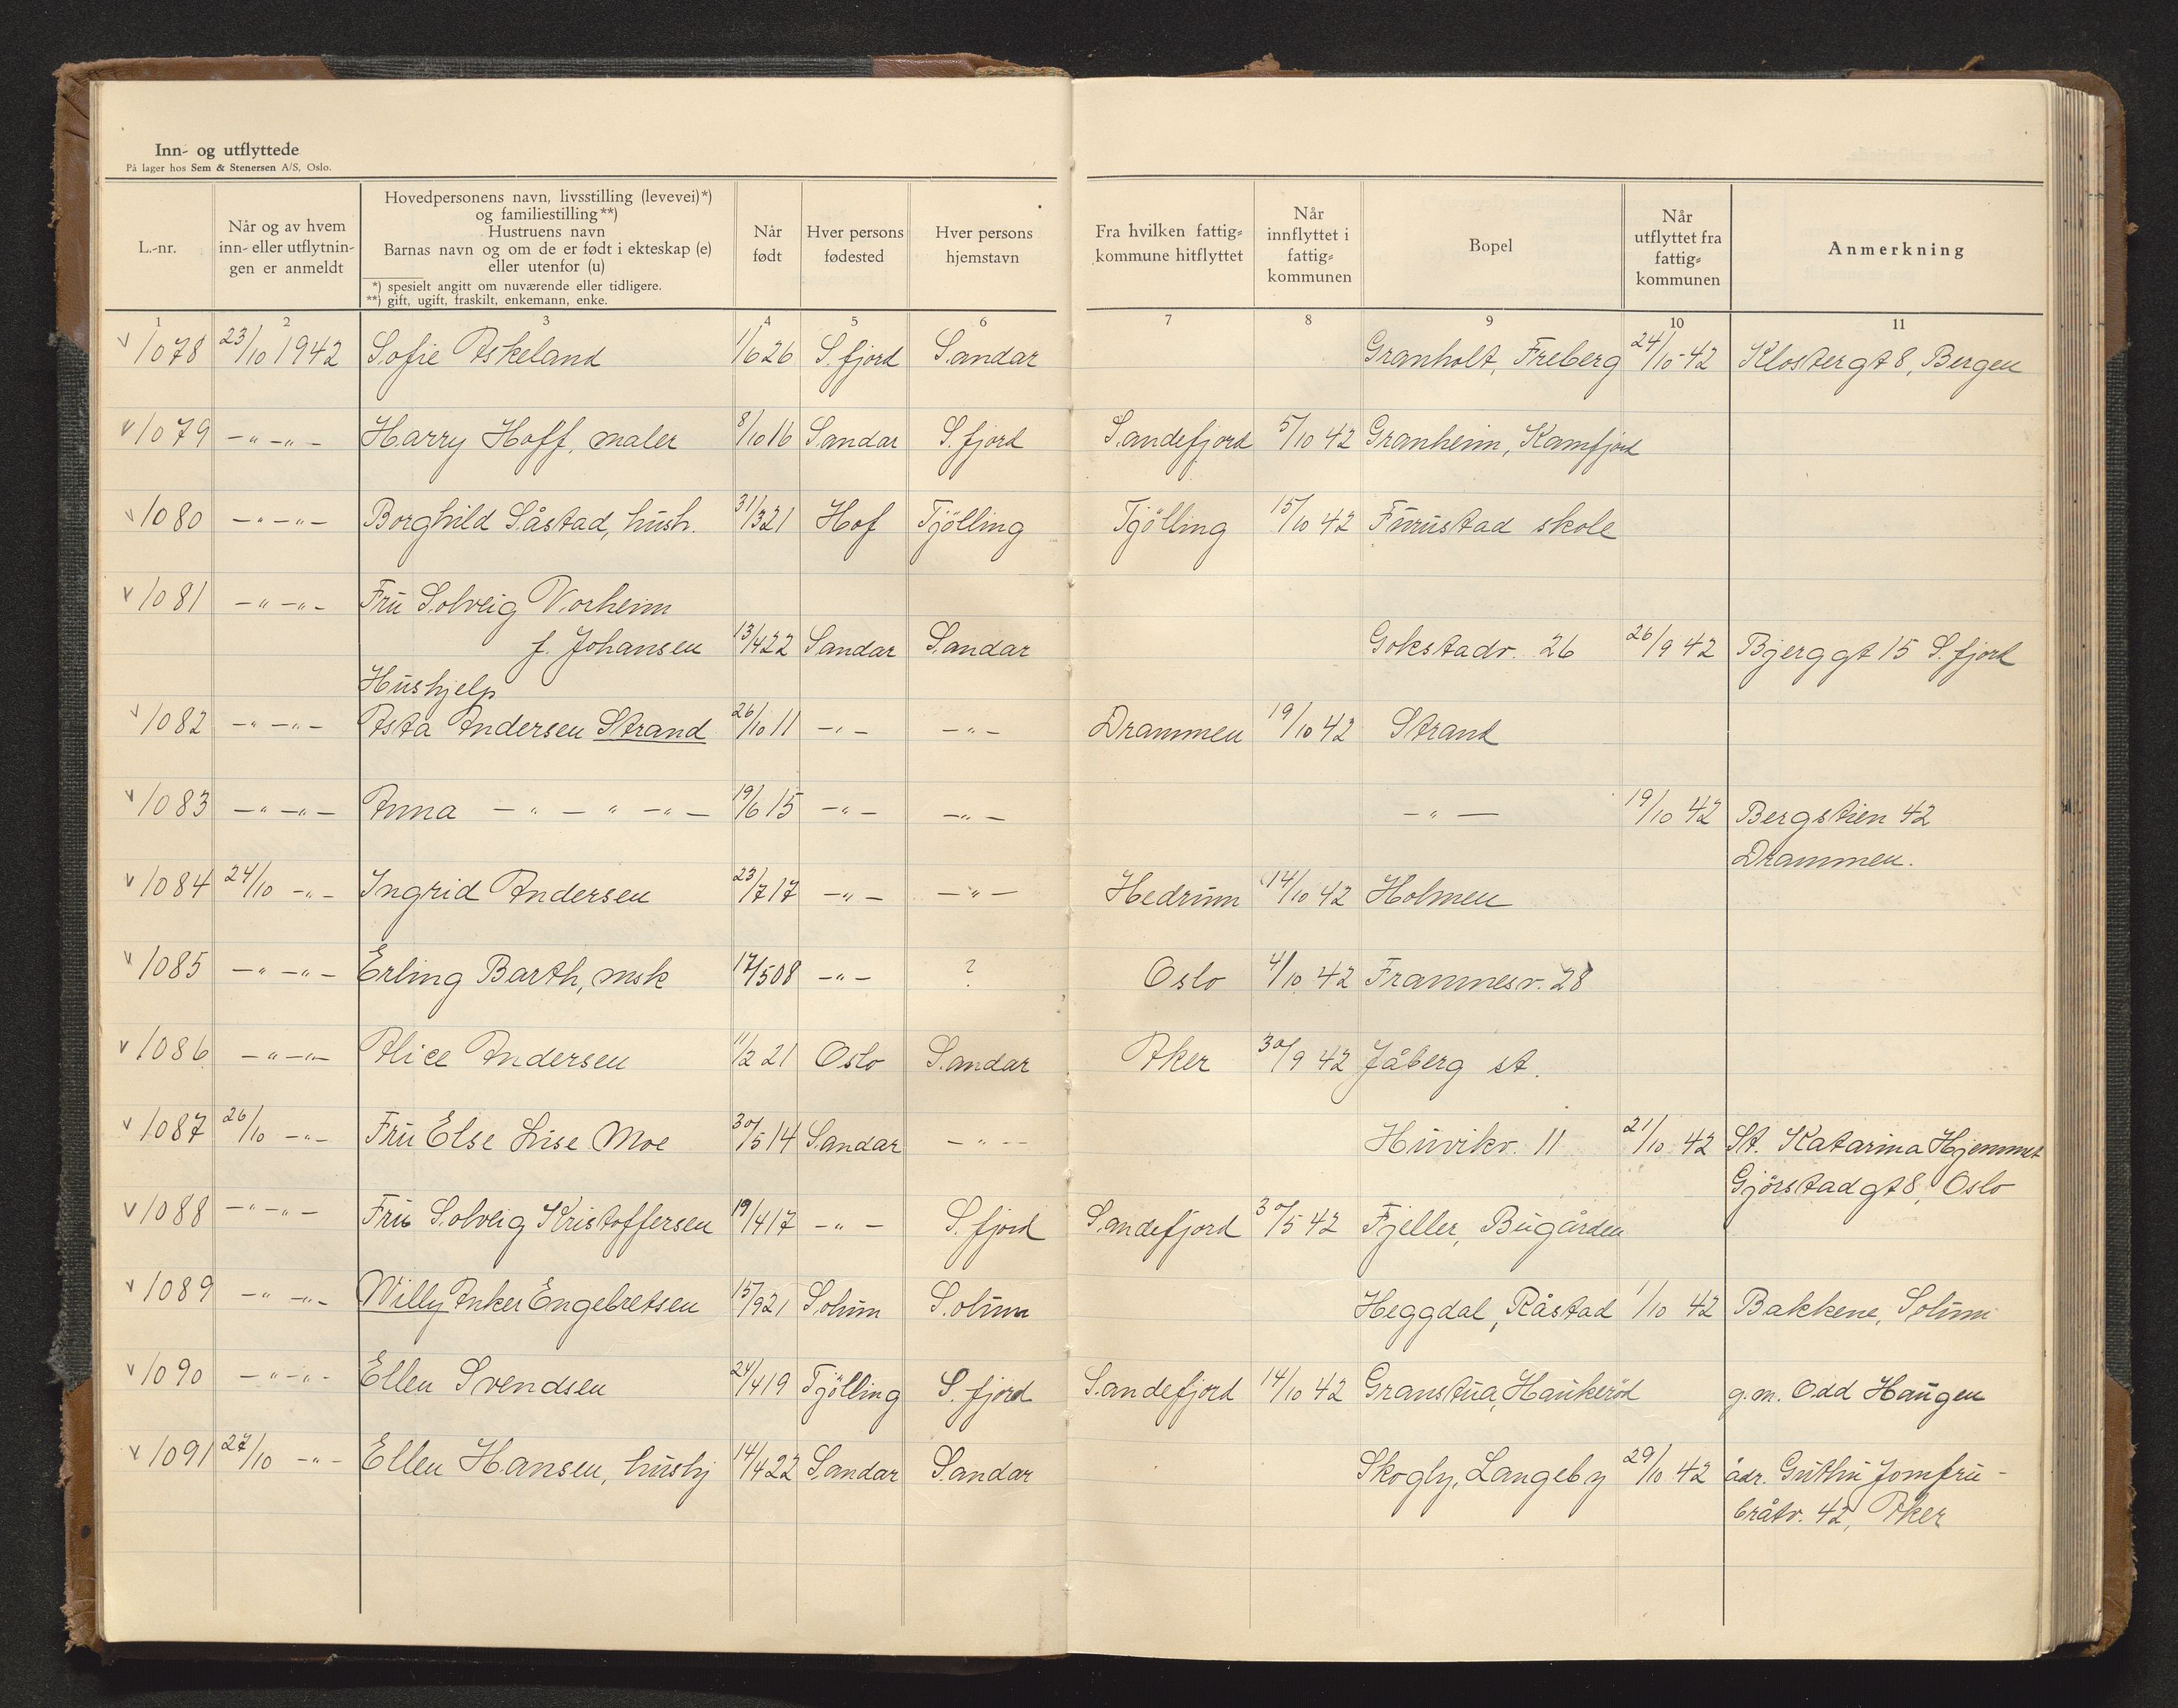 Inn- og utflyttede
På lager hos Sem & Stenersen A/S, Oslo.
L.-nr.
Når og av hvem
inn- eller utflytnin-
gen er anmeldt
Hovedpersonens navn, livsstilling (levevei)*)
og familiestilling**)
Hustruens navn
Barnas navn og om de er født i ekteskap (e)
eller utenfor (u)
*) spesielt angitt om nuværende eller tidligere.
**) gift, ugift, fraskilt, enkemann, enke.
Når
født
Hver persons
fødested
Hver persons
hjemstavn
Fra hvilken fattig-
kommune hitflyttet
Når
innflyttet i
fattig-
kommunen
Bopel
Når
utflyttet fra
fattig-
kommunen
Anmerkning
1 2 3 4 5 6 7 8 9 10 11
v 1078 23/10 1942 Sofie Askeland 1/6 26 S.fjord Sandar Granholt, Freberg 24/10 42 Klostergt 8, Bergen
v 1079 -„-„- Harry Hoff, maler 8/10 16 Sandar S.fjord Sandefjord 5/10 42 Granheim, Kamfjord
v 1080 -„-„- Borghild Såstad, hush. 31/3 21 Hof Tjölling Tjölling 15/10 42 Furustad skole
v 1081 -„-„- Fru Solveig Vorheim
f. Johansen 13/4 22 Sandar Sandar Gokstadv. 26 26/9 42 Bjerggt 15 S.fjord
Hushjelp
v 1082 -„-„- Asta Andersen Strand 26/10 11 -„- -„- Drammen 19/10 42 Strand
v 1083 -„-„- Anna -„-„-„- 19/6 15 -„- -„- -„- 19/10 42 Bergstien 42
Drammen.
v 1084 24/10 -„- Ingrid Andersen 23/7 17 -„- -„- Hedrum 14/10 42 Holmen
v 1085 -„-„- Erling Barth, msk 17/5 08 -„- ? Oslo 4/10 42 Framnesv. 28
v 1086 -„-„- Alice Andersen 11/2 21 Oslo Sandar Aker 30/9 42 Jåberg st.
v 1087 26/10 -„- Fru Else Lise Moe 30/5 14 Sandar -„- Huvikv. 11 21/10 42 St. Katarina Hjemmet
Gjörstadgt 8, Oslo
v 1088 -„-„- Fru Solveig Kristoffersen 19/4 17 -„- S.fjord Sandefjord 30/5 42 Fjeller, Bugården
v 1089 -„-„- Willy Anker Engebretsen 15/9 21 Solum Solum Heggdal, Råstad 1/10 42 Bakkene, Solum
v 1090 -„-„- Ellen Svendsen 24/4 19 Tjölling S.fjord Sandefjord 14/10 42 Granstua, Haukeröd g.m. Odd Haugen
v 1091 27/10 -„- Ellen Hansen, hushj 14/4 22 Sandar Sandar Skogly, Langeby 29/10 42 adr. Guthu Jomfru-
bråtv. 42, Aker